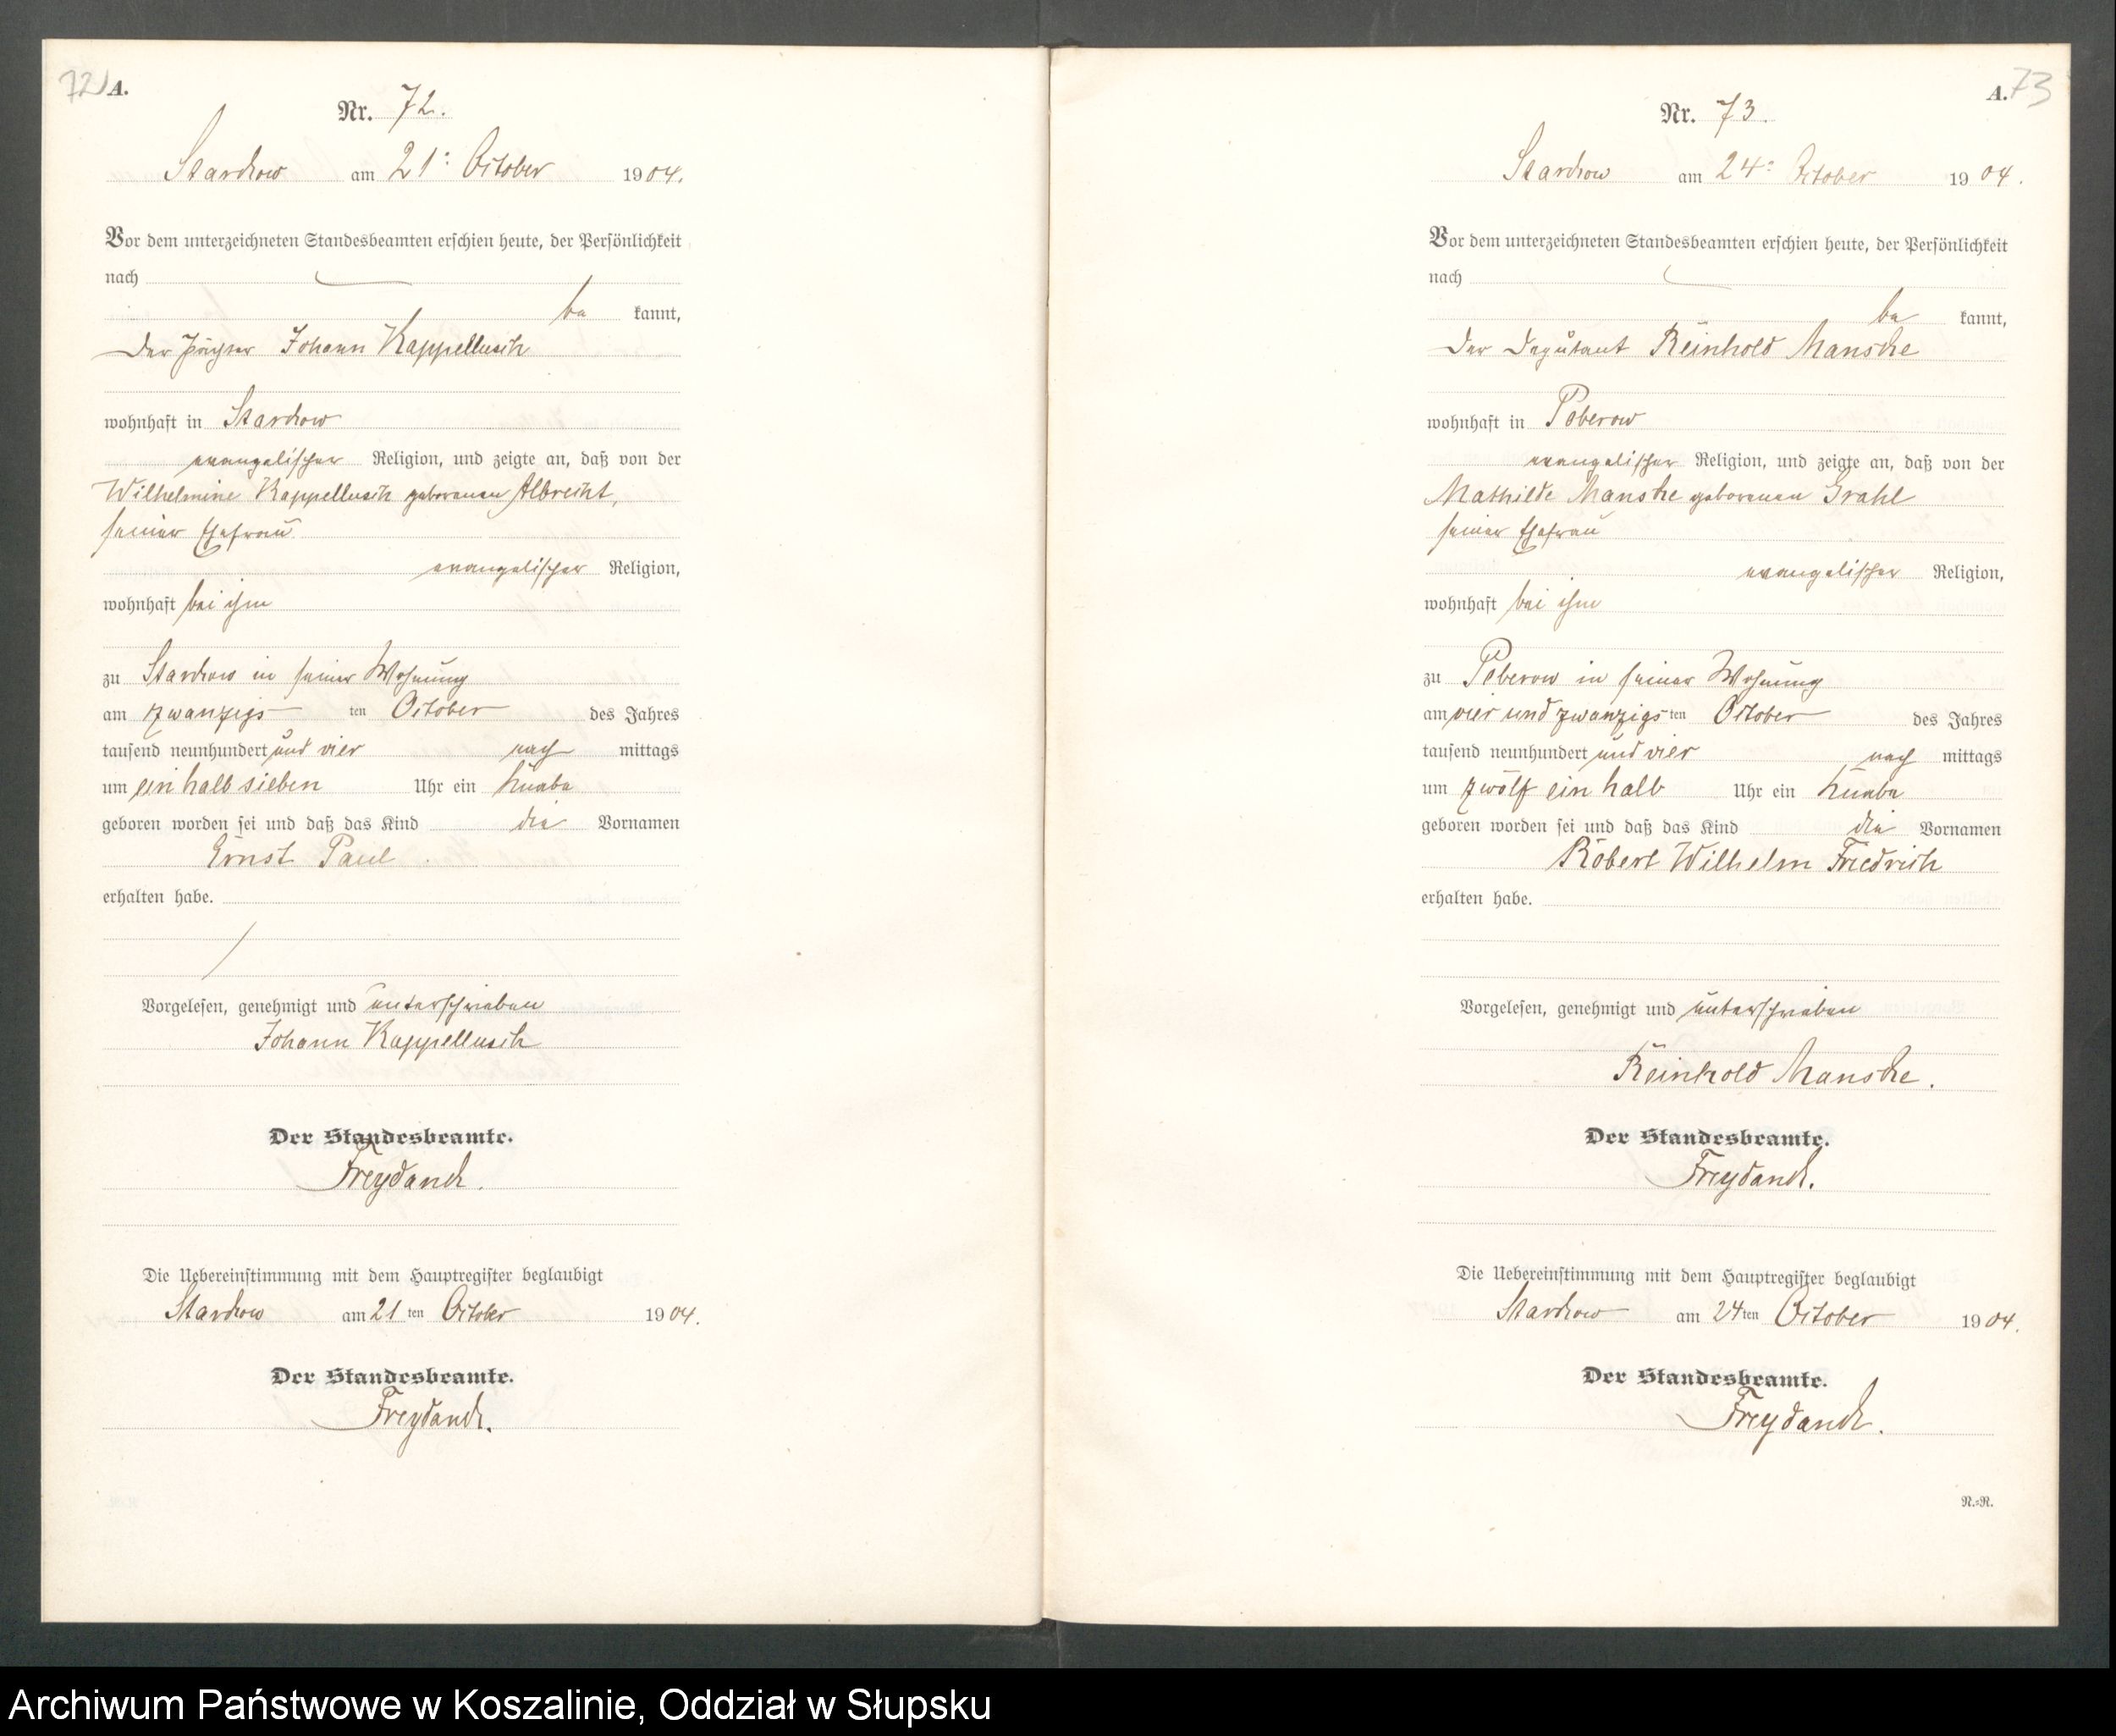 72 A.
Nr. 72.
Starkow am 21. October 1904.
Vor dem unterzeichneten Standesbeamten erschien heute, der Persönlichkeit
nach
be kannt,
Der Johann Kappellusch
wohnhaft in Starkow
evangelischer Religion, und zeigte an, daß von der
Wilhelmine Kappellusch geborenen Albrecht,
seiner Ehefrau
evangelischer Religion,
wohnhaft bei ihm
zu Starkow in seiner Wohnung
am zwanzigs ten October des Jahres
tausend neunhundert und vier nach mittags
um ein halb sieben Uhr ein Knabe
geboren worden sei und daß das Kind die Vornamen
Ernst Paul
erhalten habe.
Vorgelesen, genehmigt und unterschrieben
Johann Kappellusch
Der Standesbeamte.
Freydanck.
Die Uebereinstimmung mit dem Hauptregister beglaubigt
Starkow am 21 ten October 1904.
Der Standesbeamte.
Freydanck.
A. 73
Nr. 73.
Starkow am 24. October 1904.
Vor dem unterzeichneten Standesbeamten erschien heute, der Persönlichkeit
nach
be kannt,
Der Deputant Reinhold Manske
wohnhaft in Peberow
evangelischer Religion, und zeigte an, daß von der
Mathilde Manske geborenen Grahl
seiner Ehefrau
evangelischer Religion,
wohnhaft bei ihm
zu Peberow in seiner Wohnung
am vier und zwanzigs ten October des Jahres
tausend neunhundert und vier nach mittags
um zwölf ein halb Uhr ein Knabe
geboren worden sei und daß das Kind die Vornamen
Robert Wilhelm Friedrich
erhalten habe.
Vorgelesen, genehmigt und unterschrieben
Reinhold Manske.
Der Standesbeamte.
Freydanck.
Die Uebereinstimmung mit dem Hauptregister beglaubigt
Starkow am 24 ten October 1904.
Der Standesbeamte.
Freydanck.
N.=R.
Archiwum Państwowe w Koszalinie, Oddział w Słupsku